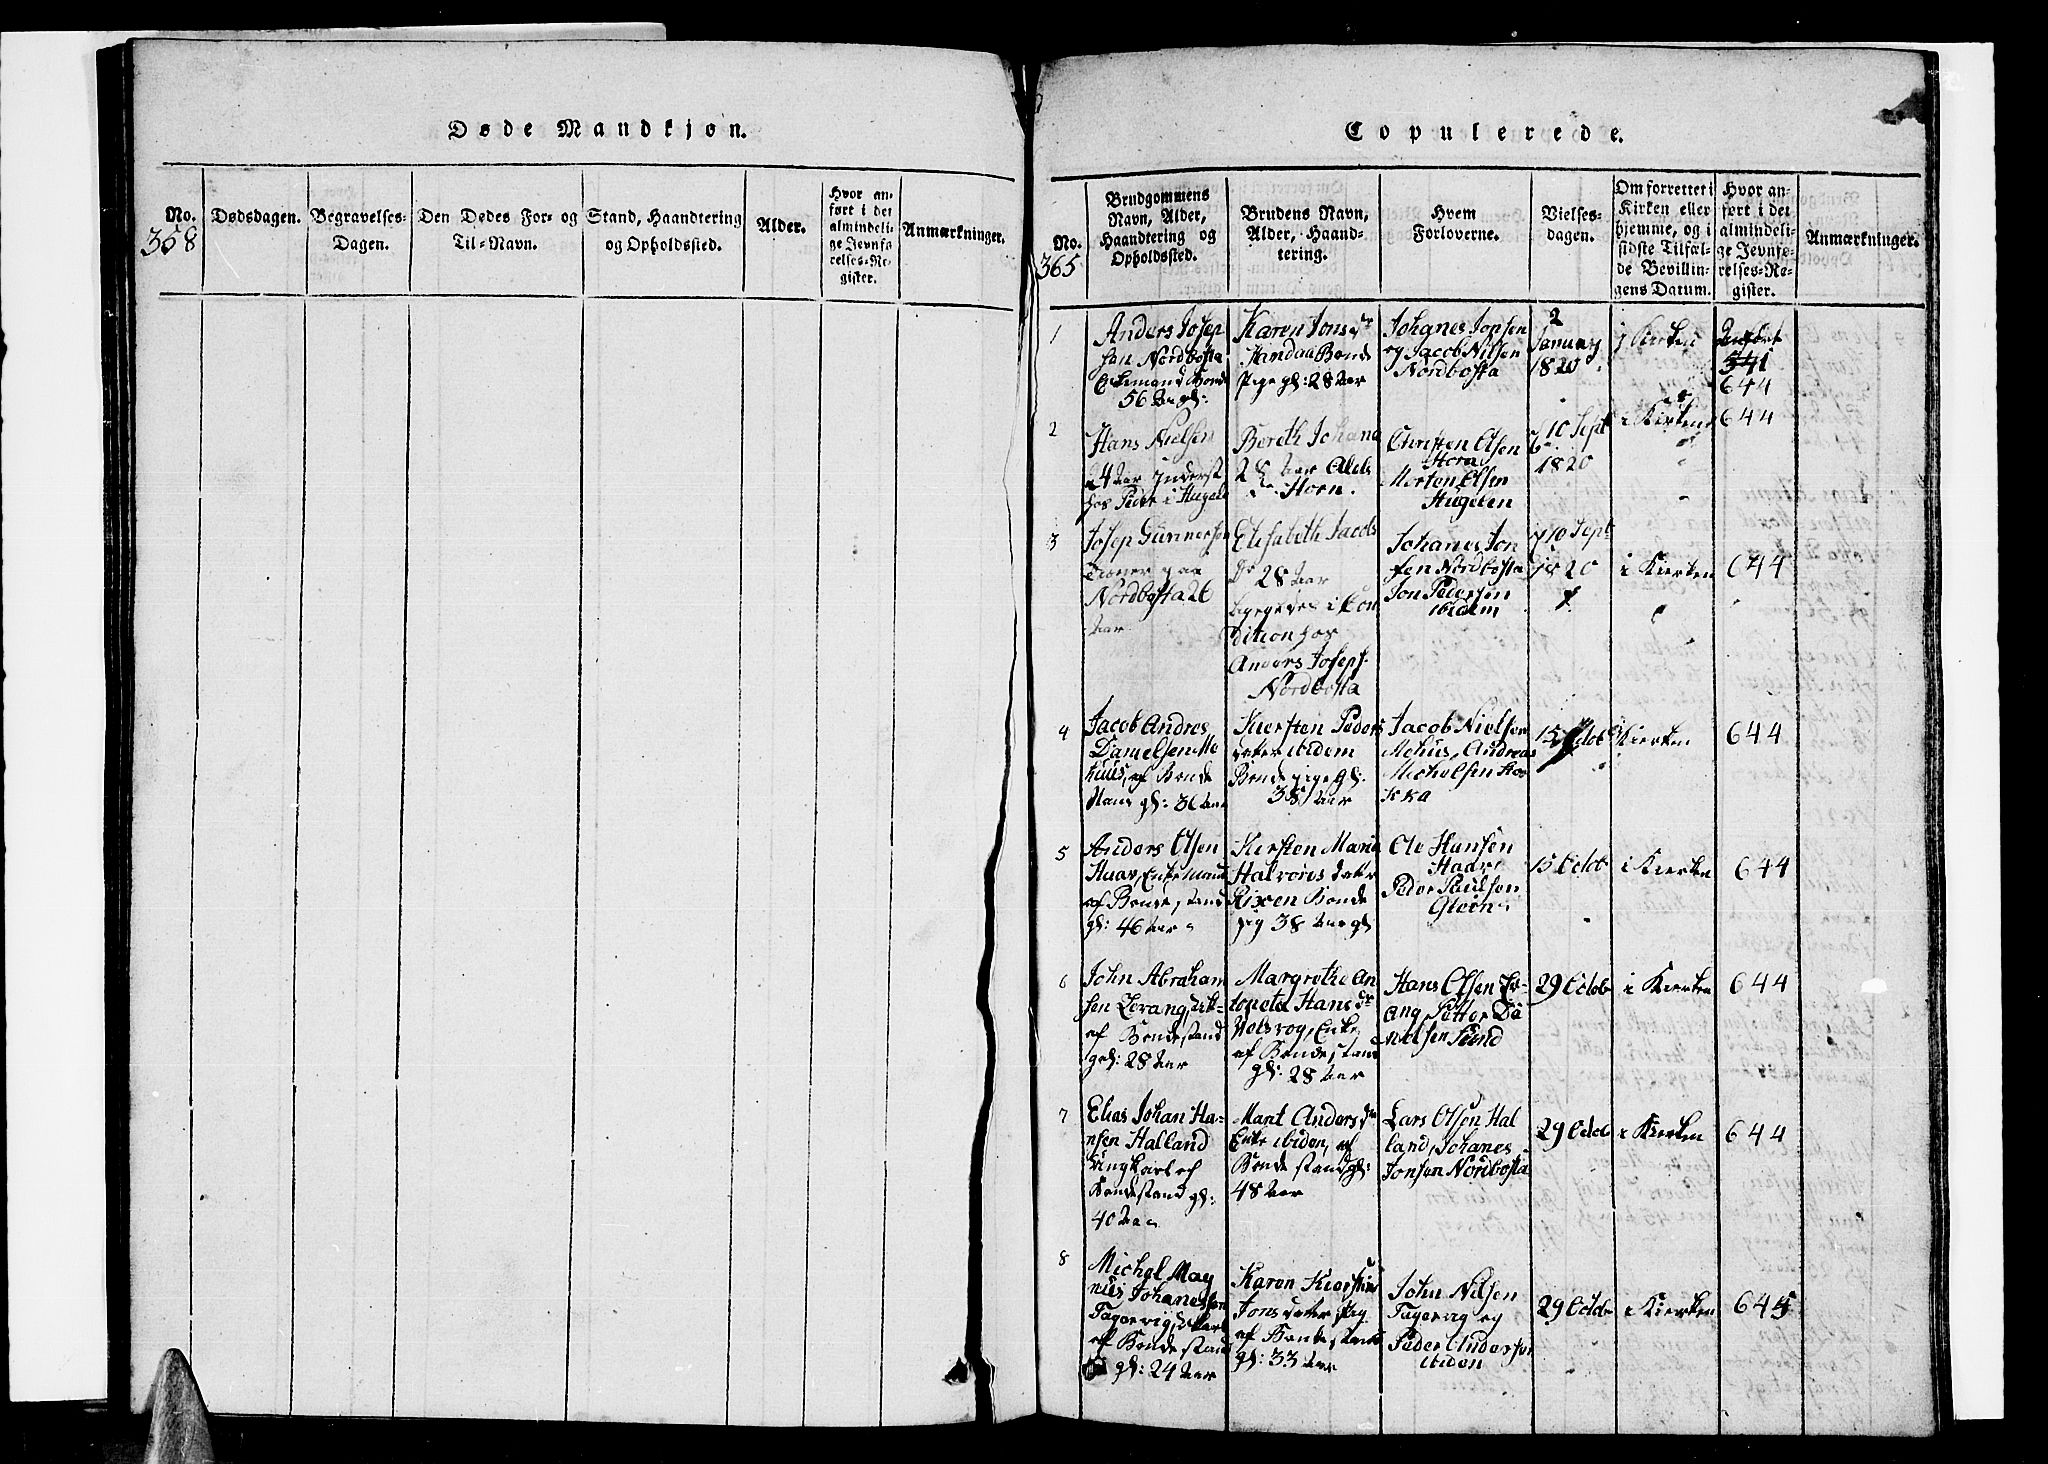 Døde Mandkjøn.
No.
358
Dødsdagen.
Begravelses-
Dagen.
Den Dødes For- og
Til-Navn.
Stand, Haandtering
og Opholdssted.
Alder.
Hvor an-
ført i det
almindeli-
ge Jevnfø-
relses-Re-
gister.
Anmærkninger.
Copulerede.
No.
365
Brudgommens
Navn, Alder,
Haandtering og
Opholdssted.
Brudens Navn,
Alder, Haand-
tering.
Hvem
Forloverne.
Vielses-
dagen.
Om forrettet i
Kirken eller
hjemme, og i
sidste Tilfæl-
de Bevillin-
gens Datum.
Hvor an-
ført i det
almindeli-
ge Jevnfø-
relses-Re-
gister.
Anmærkninger.
1
Anders Josep
sen Nordbosta
Enkemand Bonde
56 Aar gl:
Karen Jons dr
Bonde
Pige gl: 28 Aar
Johanes Jonsen
og Jacob Nilsen
Nordbosta
2
January
1820
i Kirken
541
644
2
Hans Nielsen
24 Aar Inderst
hos Peder i Hugelen
Bereth Johana
28 Aar
Horn.
Christen Olsen
Horn
Morten Olsen
Hugelen
10 Sept
1820
i Kirken
644
3
Josep Gunnersen
Tiener paa
Nordbosta 26
Aar
Elisabeth Jacobs
Dr 28 Aar
i Con
dition hos
Anders Joseps
Nordbosta
Johanes Jon
sen Nordbosta
Jon Pedersen
ibidem
10 Sept
1820
i Kierken
644
4
Jacob Andres
Danielsen Me
huus, af Bonde
Stand gl: 36 Aar
Kiersten Peders
dater ibidem
Bonde pige gl:
38 Aar
Jacob Nielsen
Mehus, Andreas
Michelsen
15 Octob
i Kierken
644
5
Anders Olsen
Enkemand
af Bonde stand
gl: 46 Aar
Kiersten Maria
Halvors dater
Bonde
pig 38 Aar gl
Ole Hansen
Peder Paulsen
Glein
15 Octob
i Kierken
644
6
John Abraham
sen
af Bondestand
gl: 28 Aar
Margrethe An
toneta Hans dr
Enke
af Bonde stand
gl: 28 Aar
Hans Olsen
Petter Da
nielsen Sund
29 Octob
i Kierken
644
7
Elias Johan Ha-
nsen Halland
Ungkarl af
Bondestand gl:
40 Aar
Marit Anders dr
Enke ibiden, af
Bonde stand gl:
48 Aar
Lars Olsen Hal
land, Johanes
Jonsen Nordbosta
29 Octob
i Kierken
644
8
Michel Mag
nus Johanessen
Fagervig,
af Bonde stand
gl: 24 Aar
Karen Kierstine
Jons dater Pig
af Bonde stand
gl: 33 Aar
John Nilsen
Fagervig og
Peder Andersen
ibiden
29 Octob
i Kierken
645